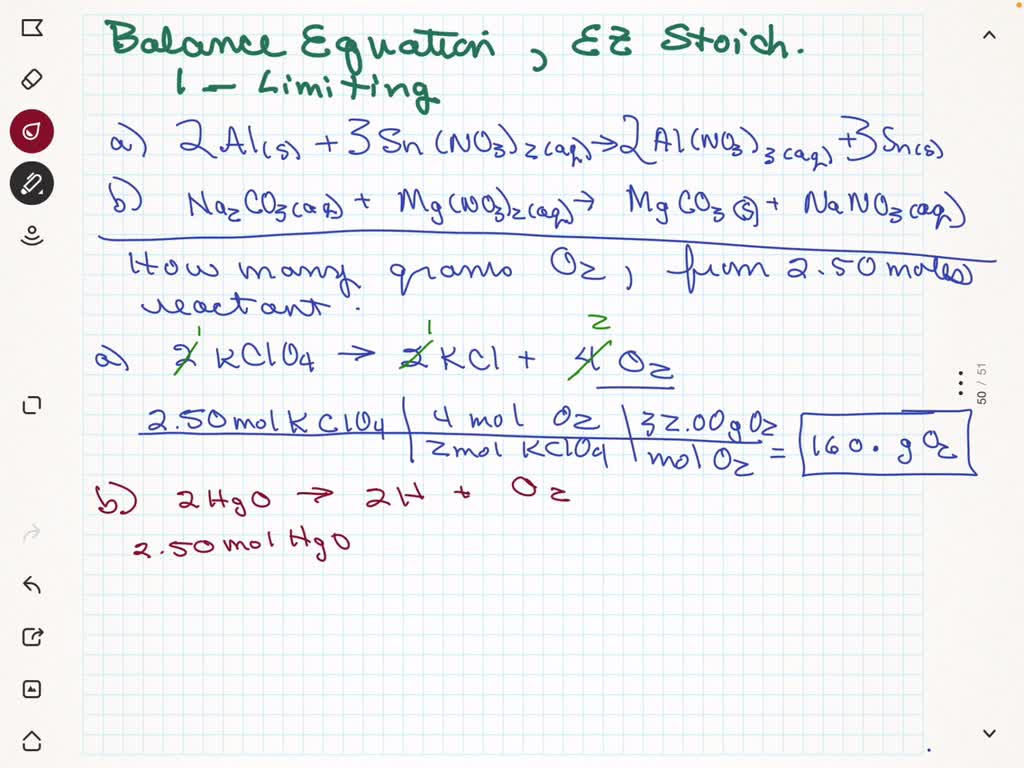 Balance Equation, EZ Stoich.
1 - Limiting
a) 2Al(s) + 3Sn(NO3)2(aq) → 2Al(NO3)3(aq) + 3Sn(s)
b) Na2CO3(aq) + Mg(NO3)2(aq) → MgCO3(s) + NaNO3(aq)
How many grams O2, from 2.50 moles
reactant.
1 1 2
a) 2 KClO4 → 2 KCl + 4 O2
50 / 51
2.50 mol KClO4 | 4 mol O2 | 32.00 g O2
2 mol KClO4 | mol O2 = 160. g O2
b) 2HgO → 2H + O2
2.50 mol HgO